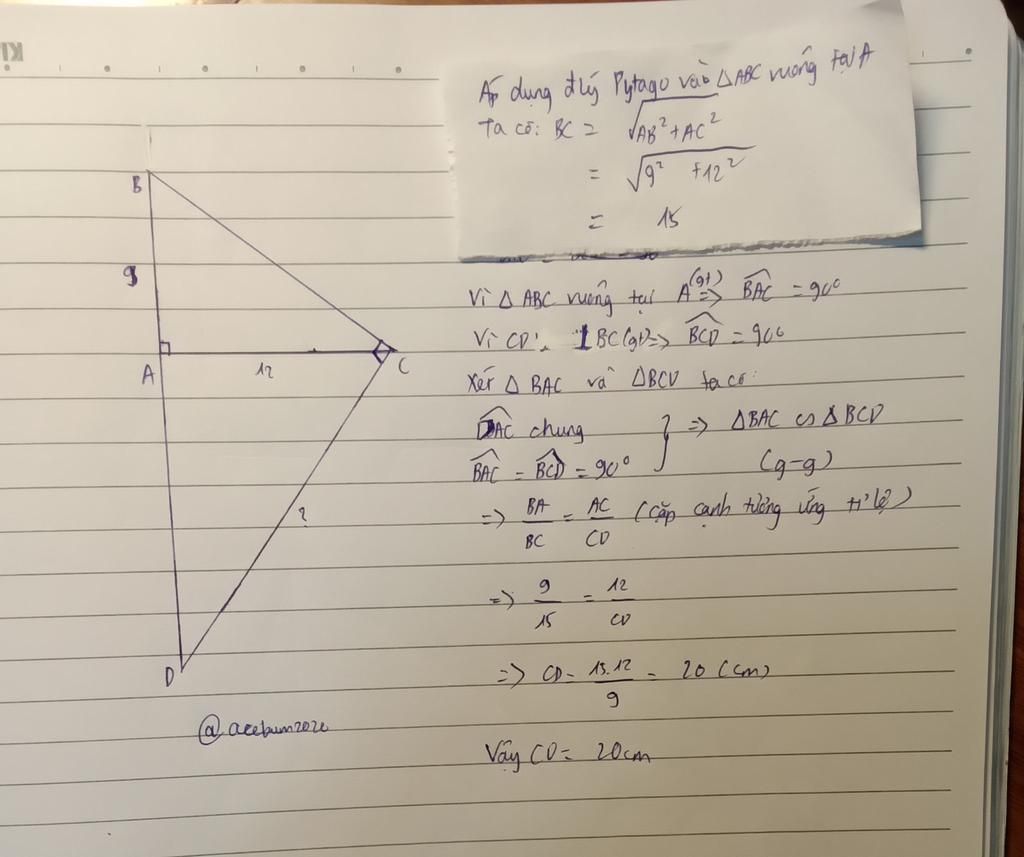 Áp dụng đlý Pytago vào △ABC vuông tại A
Ta có: BC = √AB² + AC²
= √9² + 12²
= 15
B
9
A
12
C
?
D
@acebum2020
Vì △ ABC vuông tại A (gt) => BAC = 90°
Vì CD ⊥ BC (gt) => BCD = 90°
Xét △ BAC và △BCD ta có:
DAC chung
BAC = BCD = 90°
} => △BAC ∽ △BCD
(g-g)
=> BA/BC = AC/CD (cặp cạnh tương ứng tỉ lệ)
=> 9/15 = 12/CD
=> CD = 15.12/9 = 20 (cm)
Vậy CD = 20cm